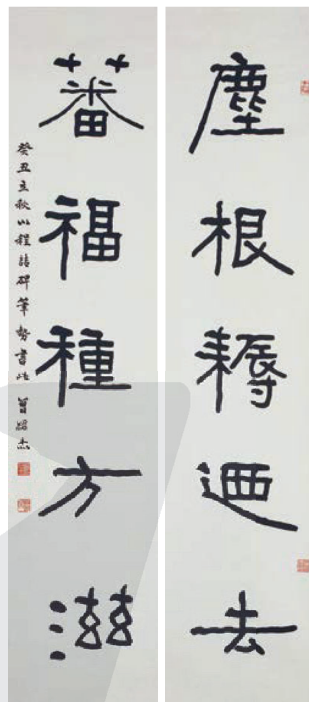 塵根耨迺去
蕃福種方滋
癸丑立秋以程喆碑筆勢書此 曾紹杰